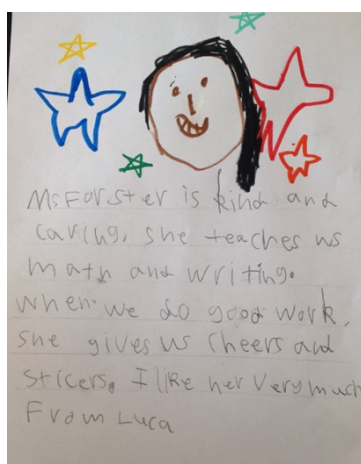 MsForster is kind and
caring. she teaches us
math and writing.
when we do good work,
she gives us cheers and
sticers. I like her very much
From Luca